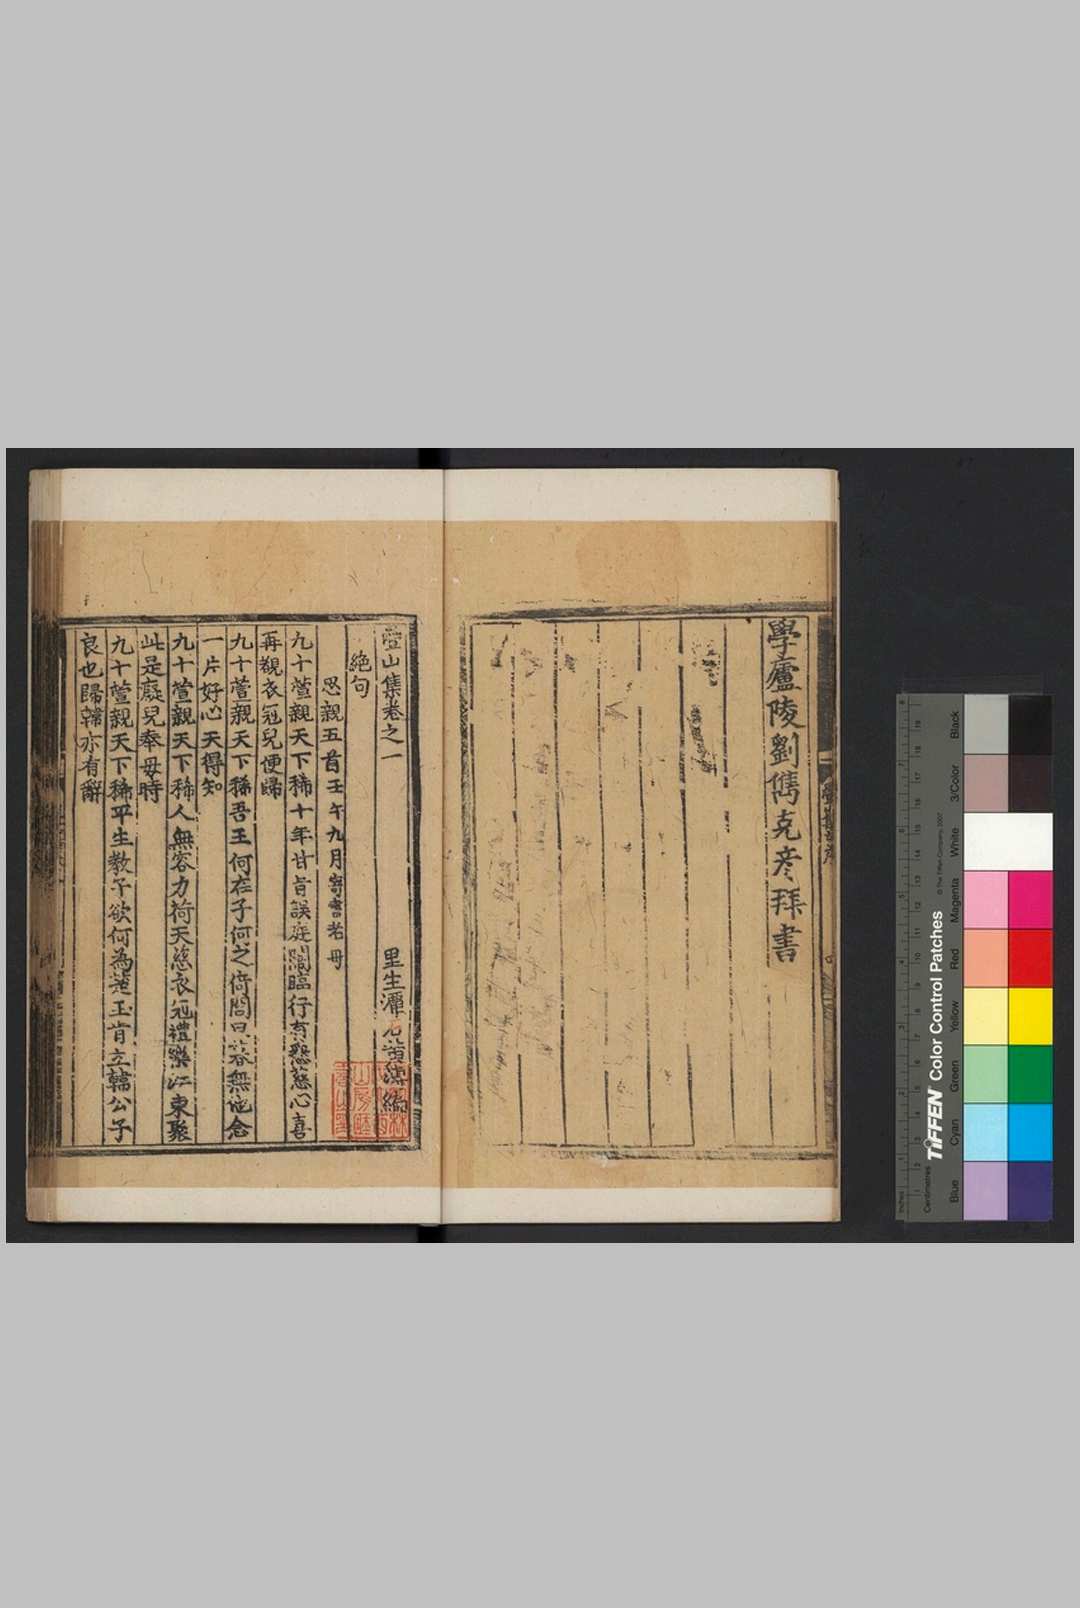 學廬陵劉儁克彥拜書
壺山集卷之一
里生
絕句
思親五首壬午九月寄書老母
九十萱親天下稀十年甘旨誤庭闈臨行有慈心喜
再覩衣冠兒便歸
九十萱親天下稀吾王何在子何之倚閭日無他念
一片好心天得知
九十萱親天下稀人無容力荷天慈衣冠禮樂江東聚
此是癡兒奉毋時
九十萱親天下稀平生教子欲何為楚王肯立韓公子
良也歸韓亦有辭
TIFFEN Color Control Patches
© The Tiffen Company, 2007
Centimetres
Inches
Blue
Cyan
Green
Yellow
Red
Magenta
White
3/Color
Black